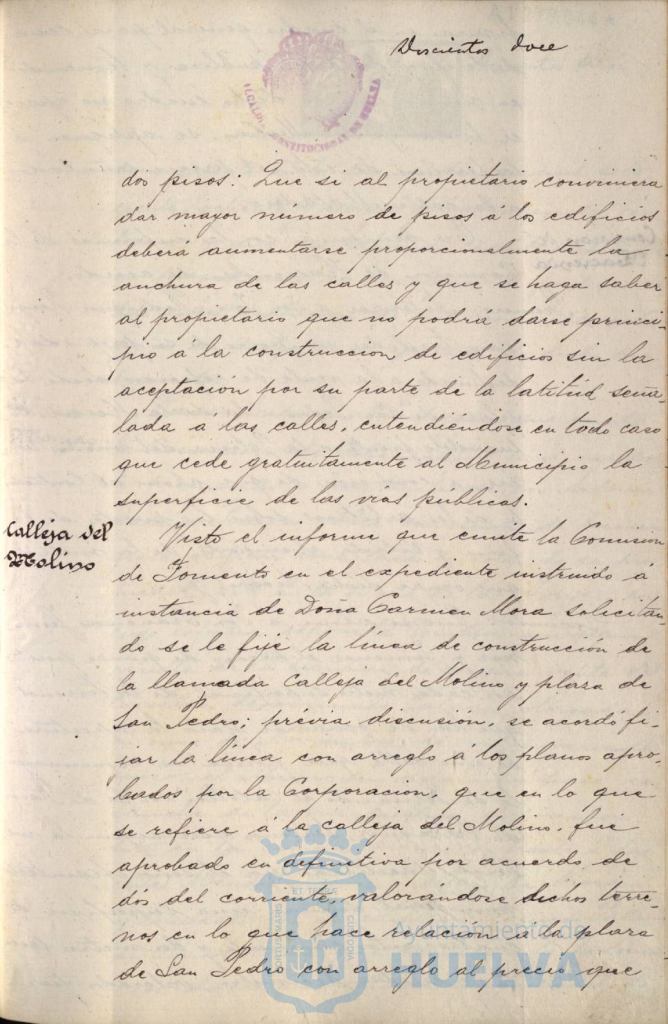 Doscientos doce
ALCALDIA CONSTITUCIONAL DE HUELVA
dos pisos: Que si al propietario conviniera
dar mayor número de pisos á los edificios
deberá aumentarse proporcionalmente la
anchura de las calles y que se haga saber
al propietario que no podrá darse princi-
pio á la construccion de edificios sin la
aceptación por su parte de la latitud seña-
lada á las calles, entendiéndose en todo caso
que cede gratuitamente al Municipio la
superficie de las vías públicas.
Calleja del
Molino
Visto el informe que emite la Comision
de Fomento en el expediente instruido á
instancia de Doña Carmen Mora solicitan-
do se le fije la línea de construcción de
la llamada Calleja del Molino y plaza de
San Pedro; prévia discusión, se acordó fi-
jar la línea con arreglo á los planos apro-
bados por la Corporacion, que en lo que
se refiere á la calleja del Molino, fué
aprobado en definitiva por acuerdo de
dós del corriente, valorándose dichos terre-
nos en lo que hace relación á la plaza
de San Pedro con arreglo al precio que
Ayuntamiento de
HUELVA